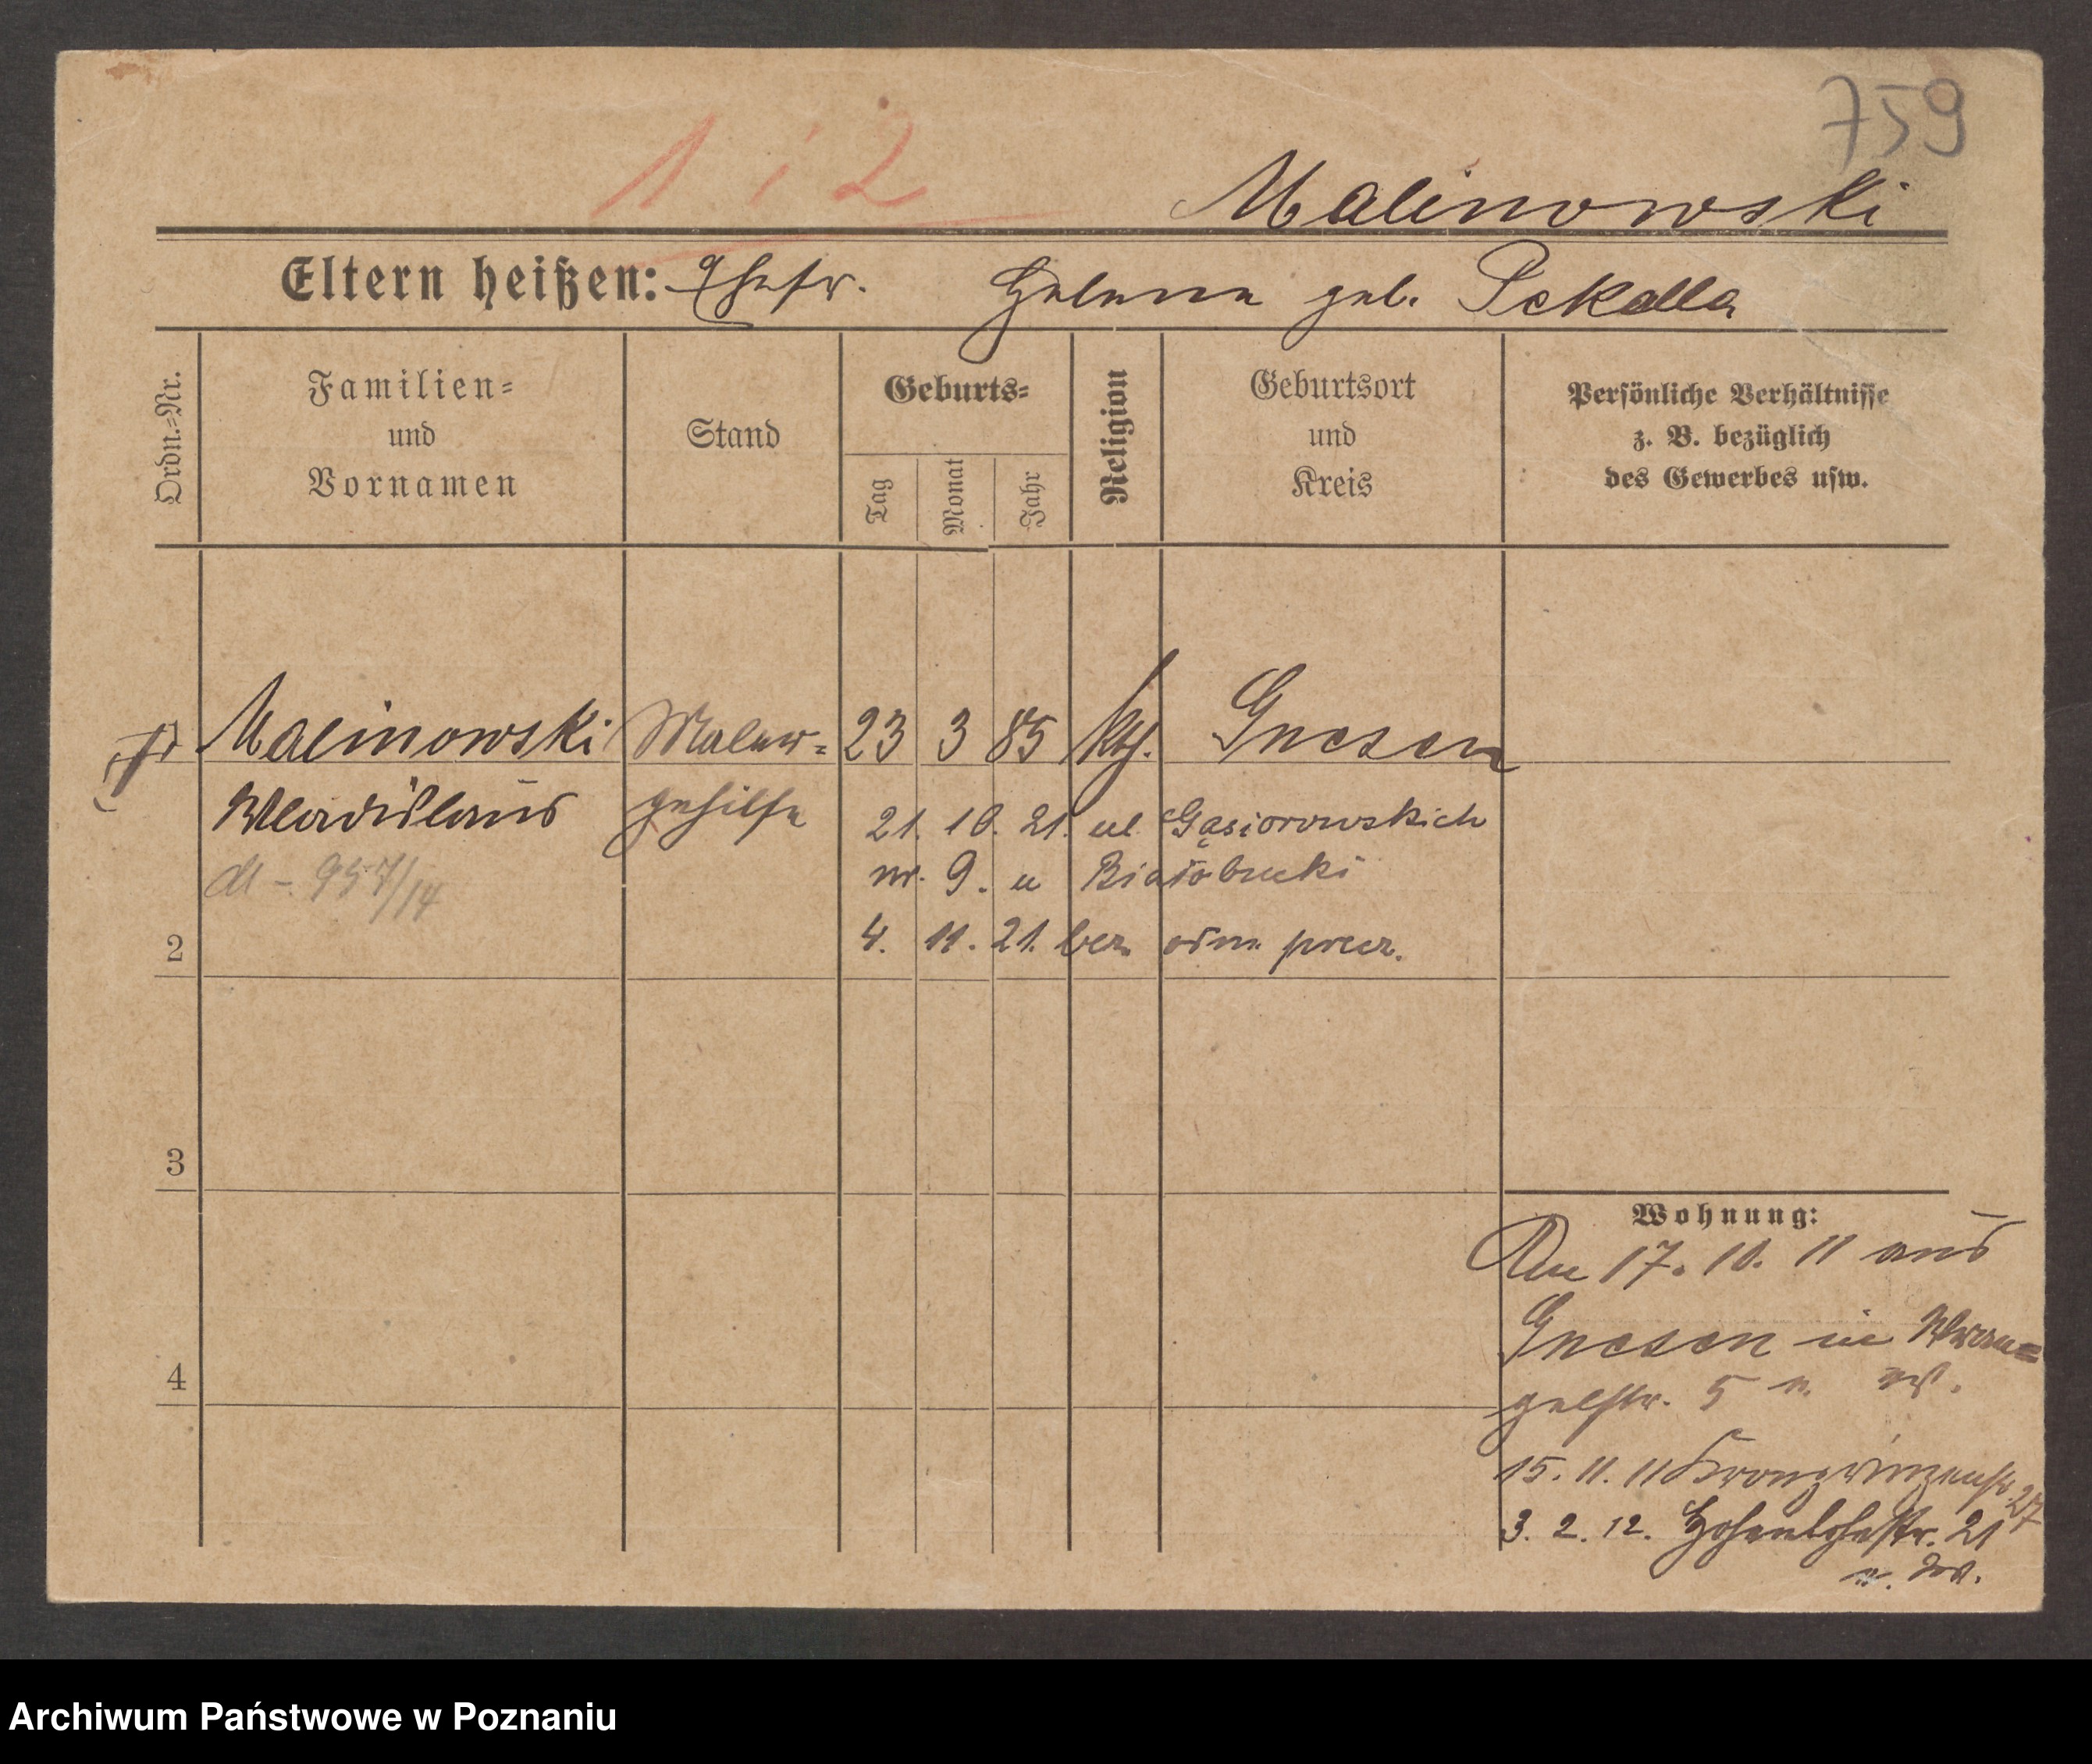 759
1 i 2
Malinowski
Eltern heißen: Ehefr. Helene geb. Pekalla
Ordn.=Nr.
Familien=
und
Vornamen
Stand
Geburts=
Tag
Monat
Jahr
Religion
Geburtsort
und
Kreis
Persönliche Verhältnisse
z. B. bezüglich
des Gewerbes usw.
Malinowski Maler= 23 3 85 kth. Gnesen
Wladislaus gehilfe
21. 10. 21. ul. Gąsiorowskich
957/14
nr. 9. u
2
4. 11. 21. bez.
3
4
Wohnung:
17. 10. 11 aus
Gnesen in Wran=
gelstr. 5
15. 11. 11 Kronprinzenstr. 27
3. 2. 12. Hohenlohestr. 21
Archiwum Państwowe w Poznaniu